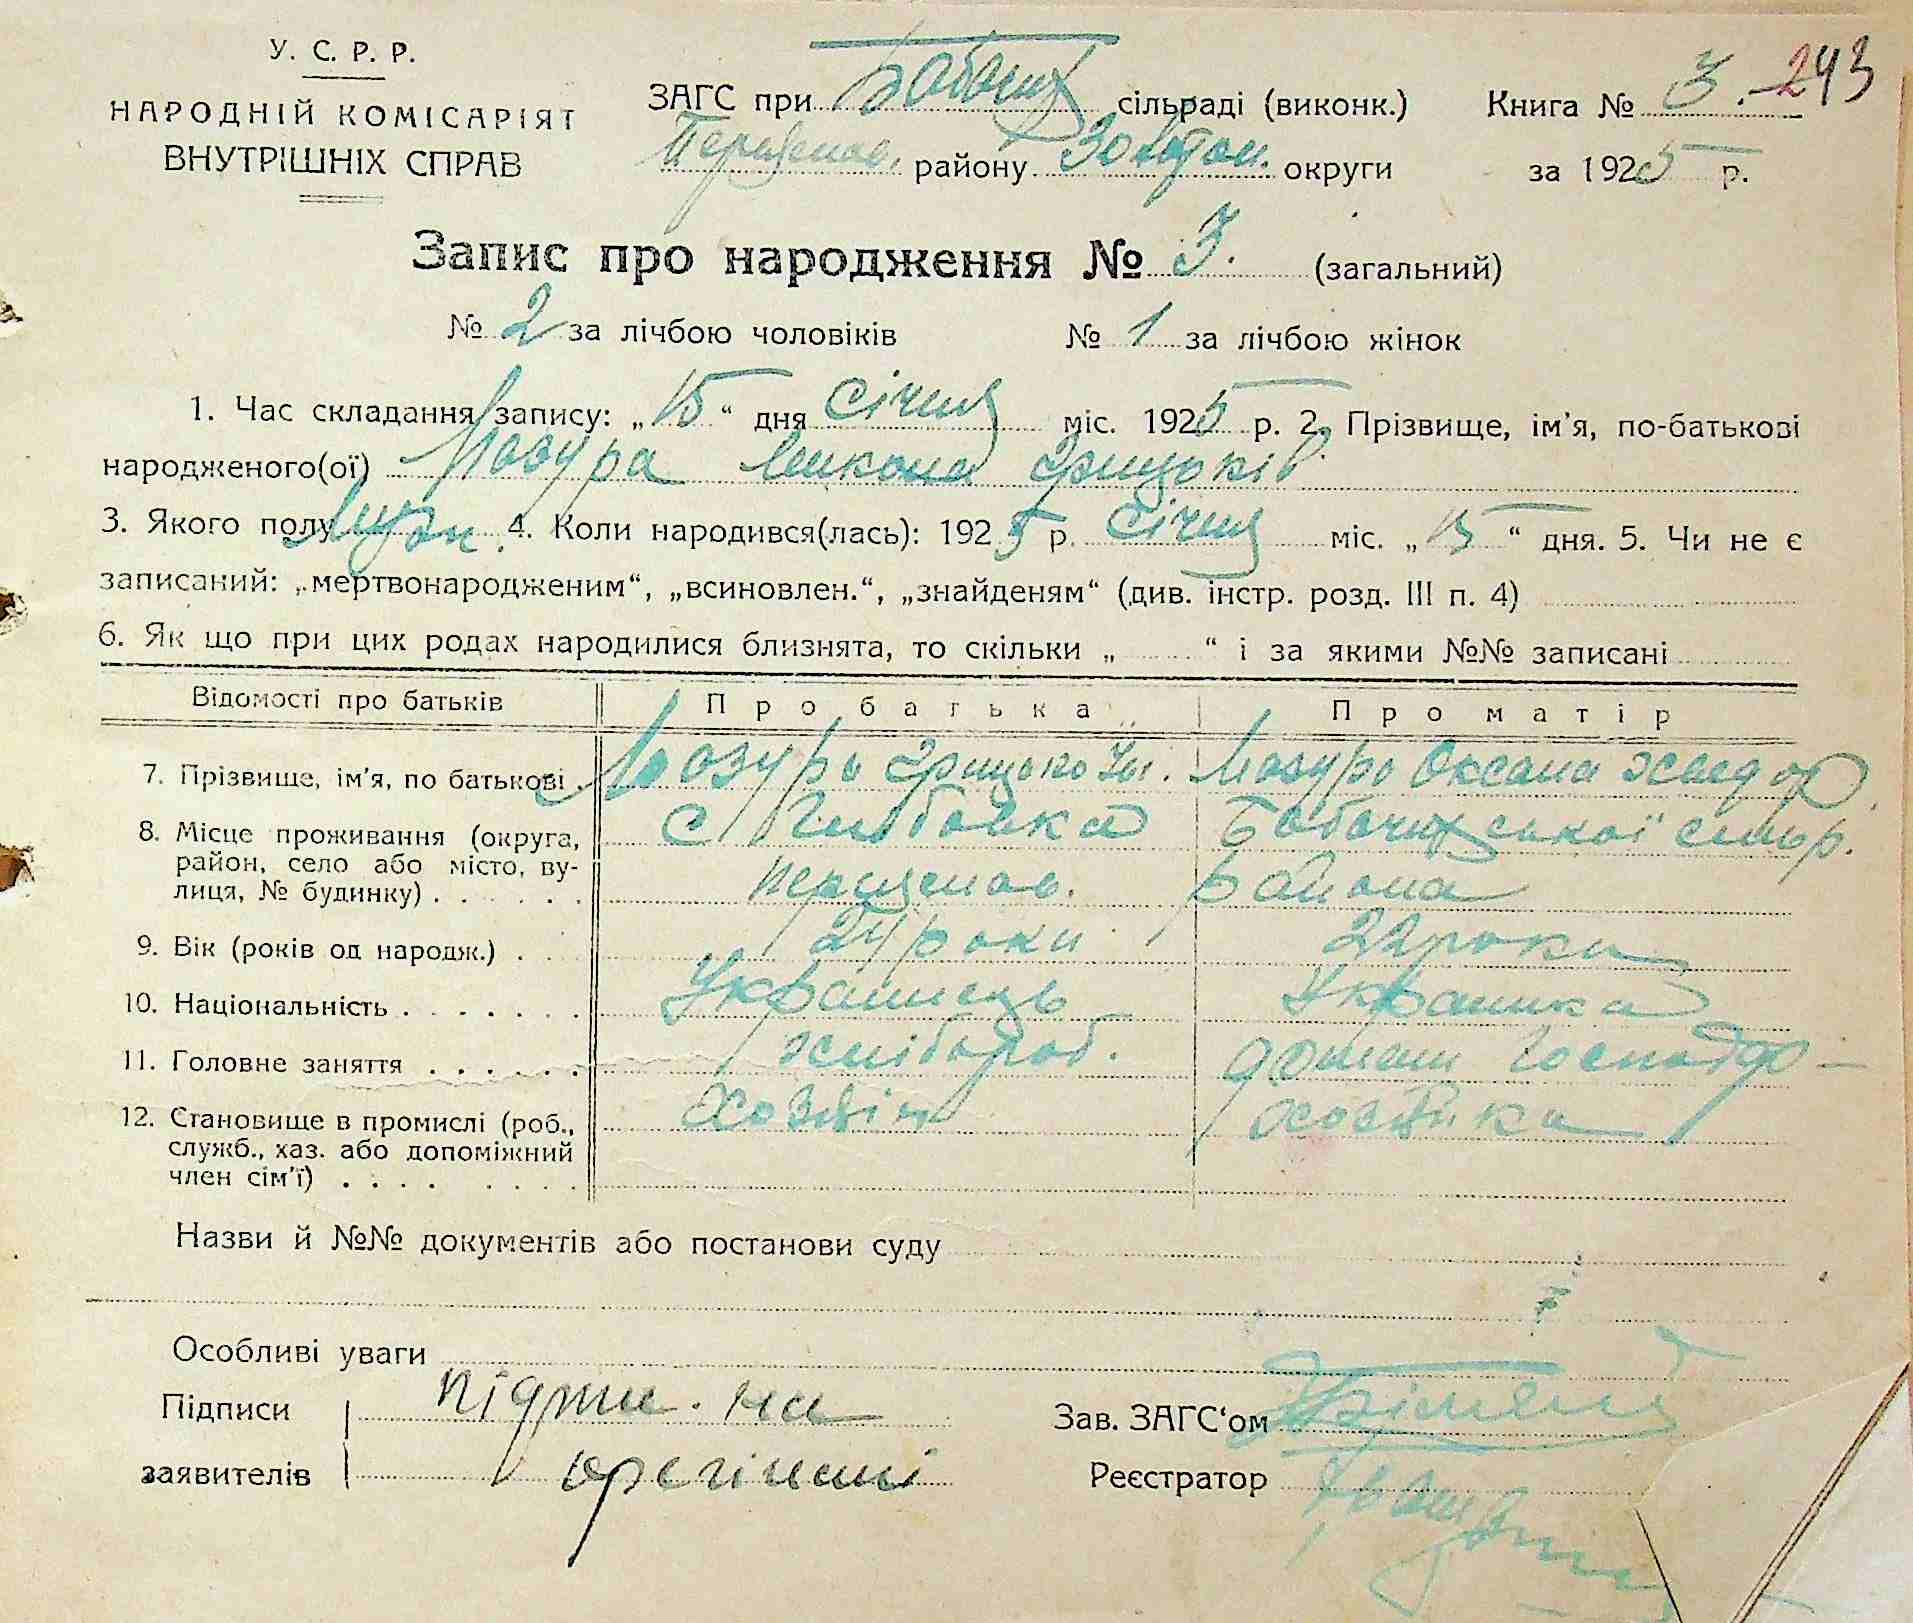 У. С. Р. Р.
НАРОДНІЙ КОМІСАРІЯТ
ВНУТРІШНІХ СПРАВ
ЗАГС при сільраді (виконк.) Книга № 3. 243
району Золотон. округи за 1925 р.
Запис про народження № 3. (загальний)
№ 2 за лічбою чоловіків № 1 за лічбою жінок
1. Час складання запису: „15“ дня січня міс. 1925 р. 2. Прізвище, ім'я, по-батькові
народженого(ої) Мазура Микола Грицьків
3. Якого полу муж. 4. Коли народився(лась): 1925 р. січня міс. „ “ дня. 5. Чи не є
записаний: „мертвонародженим“, „всиновлен.“, „знайденям“ (див. інстр. розд. III п. 4)
6. Як що при цих родах народилися близнята, то скільки „ “ і за якими №№ записані
Відомості про батьків Про батька Про матір
7. Прізвище, ім'я, по батькові Грицько Оксана
8. Місце проживання (округа, с
район, село або місто, ву- района
лиця, № будинку)
9. Вік (років од народж.) 24 роки 22 роки
10. Національність Украинець Украинка
11. Головне заняття хлібороб. домаш господар
12. Становище в промислі (роб., Хозяїн хозяйка
служб., хаз. або допоміжний
член сім'ї)
Назви й №№ документів або постанови суду
Особливі уваги
Підписи підпис. на Зав. ЗАГС'ом
заявителів орегіналі Реєстратор